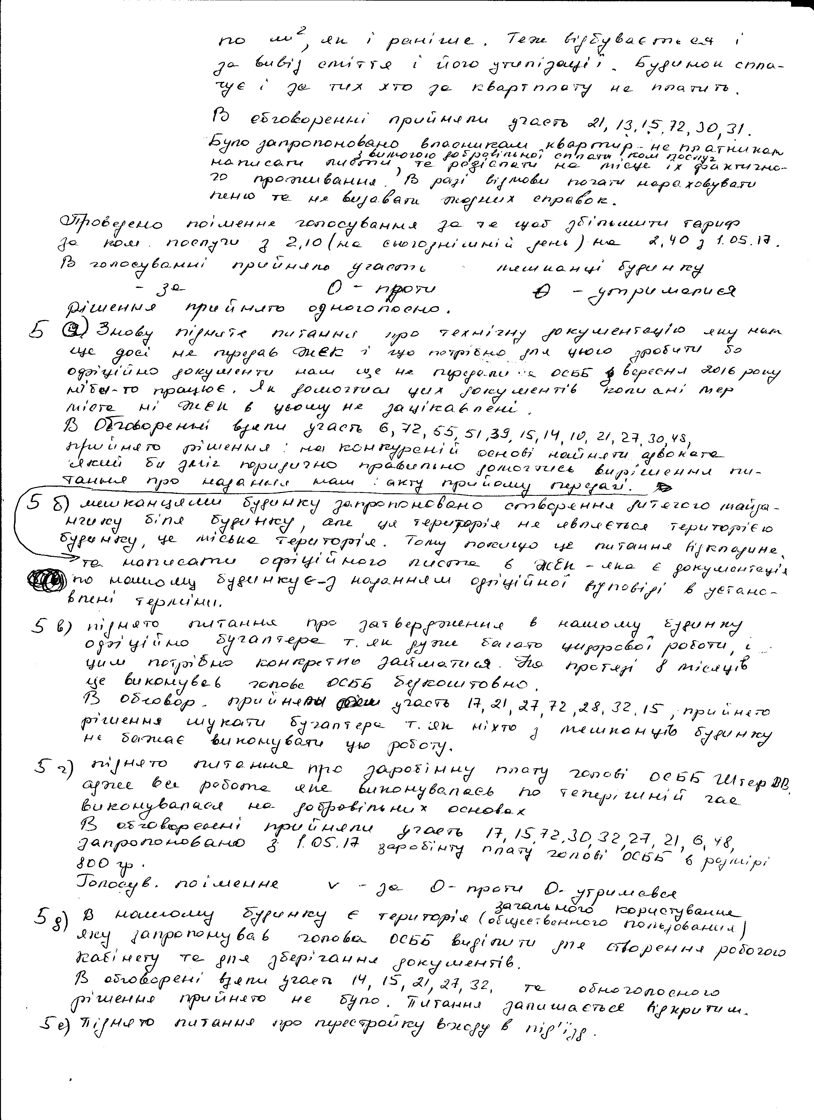 по м², як і раніше. Теж відбувається і
за вивіз сміття і його утилізації. Будинок спла-
чує і за тих хто за квартплату не платить.
В обговоренні прийняли участь 21, 13, 15, 72, 30, 31.
Було запропоновано власникам квартир - не платникам
з вимогою добровільної сплати ком послуг
написати листи, та розіслати на місце їх фактично-
го проживання. В разі відмови почати нараховувати
пеню та не видавати жодних справок.
Проведено поіменне голосування за те щоб збільшити тариф
за ком. послуги з 2,10 (на сьогоднішній день) на 2,40 з 1.05.17.
В голосуванні прийняло участь мешканці будинку
- за 0 - проти 0 - утрималися
рішення прийнято одноголосно.
5 а) Знову підняте питання про технічну документацію яку нам
ще досі не передав ЖЕК і що потрібно для цього зробити бо
офіційно документи нам ще не передали а ОСББ з вересня 2016 року
ніби-то працює. Як домогтися цих документів коли ані мер
міста ні ЖЕК в цьому не зацікавлені.
В Обговоренні взяли участь 6, 72, 55, 51, 39, 15, 14, 10, 21, 27, 30, 48,
прийнято рішення: на конкурсній основі найняти адвоката
який би зміг юридично правильно домогтись вирішення пи-
тання про надання нам: акту прийому передачі.
5 б) мешканцями будинку запропоновано створення дитячого майда-
нчику біля будинку, але ця територія не являється територією
будинку, це міська територія. Тому покищо це питання відкладине.
та написати офіційного листа в ЖЕК - яка є документація
по нашому будинку є - з наданням офіційної відповіді в устано-
влені терміни.
5 в) піднято питання про затвердження в нашому будинку
офіційно бугалтера т. як дуже багато цифрової роботи, і
цим потрібно конкретно займатися. На протязі 8 місяців
це виконував голова ОСББ безкоштовно.
В обговор. прийняли участь 17, 21, 27, 72, 28, 32, 15, прийнято
рішення шукати бугалтера т. як ніхто з мешканців будинку
не бажає виконувати цю роботу.
5 г) піднято питання про заробінну плату голові ОСББ Штер ДВ,
адже вся робота яка виконувалась по теперішній час
виконувалася на добровільних основах
В обговоренні прийняли участь 17, 15, 72, 30, 32, 27, 21, 6, 48,
запропоновано з 1.05.17 заробінту плату голові ОСББ в розмірі
800 гр.
Голосув. поіменне v - за 0 - проти 0 - утримався
загального користування
5 д) В нашому будинку є територія (общественного пользования)
яку запропонував голова ОСББ виділити для створення робочого
кабінету та для зберігання документів.
В обговорені взяли участь 14, 15, 21, 27, 32, та одноголосного
рішення прийнято не було. Питання залишається відкритим.
5 е) Піднято питання про перестройку входу в під'їзд.